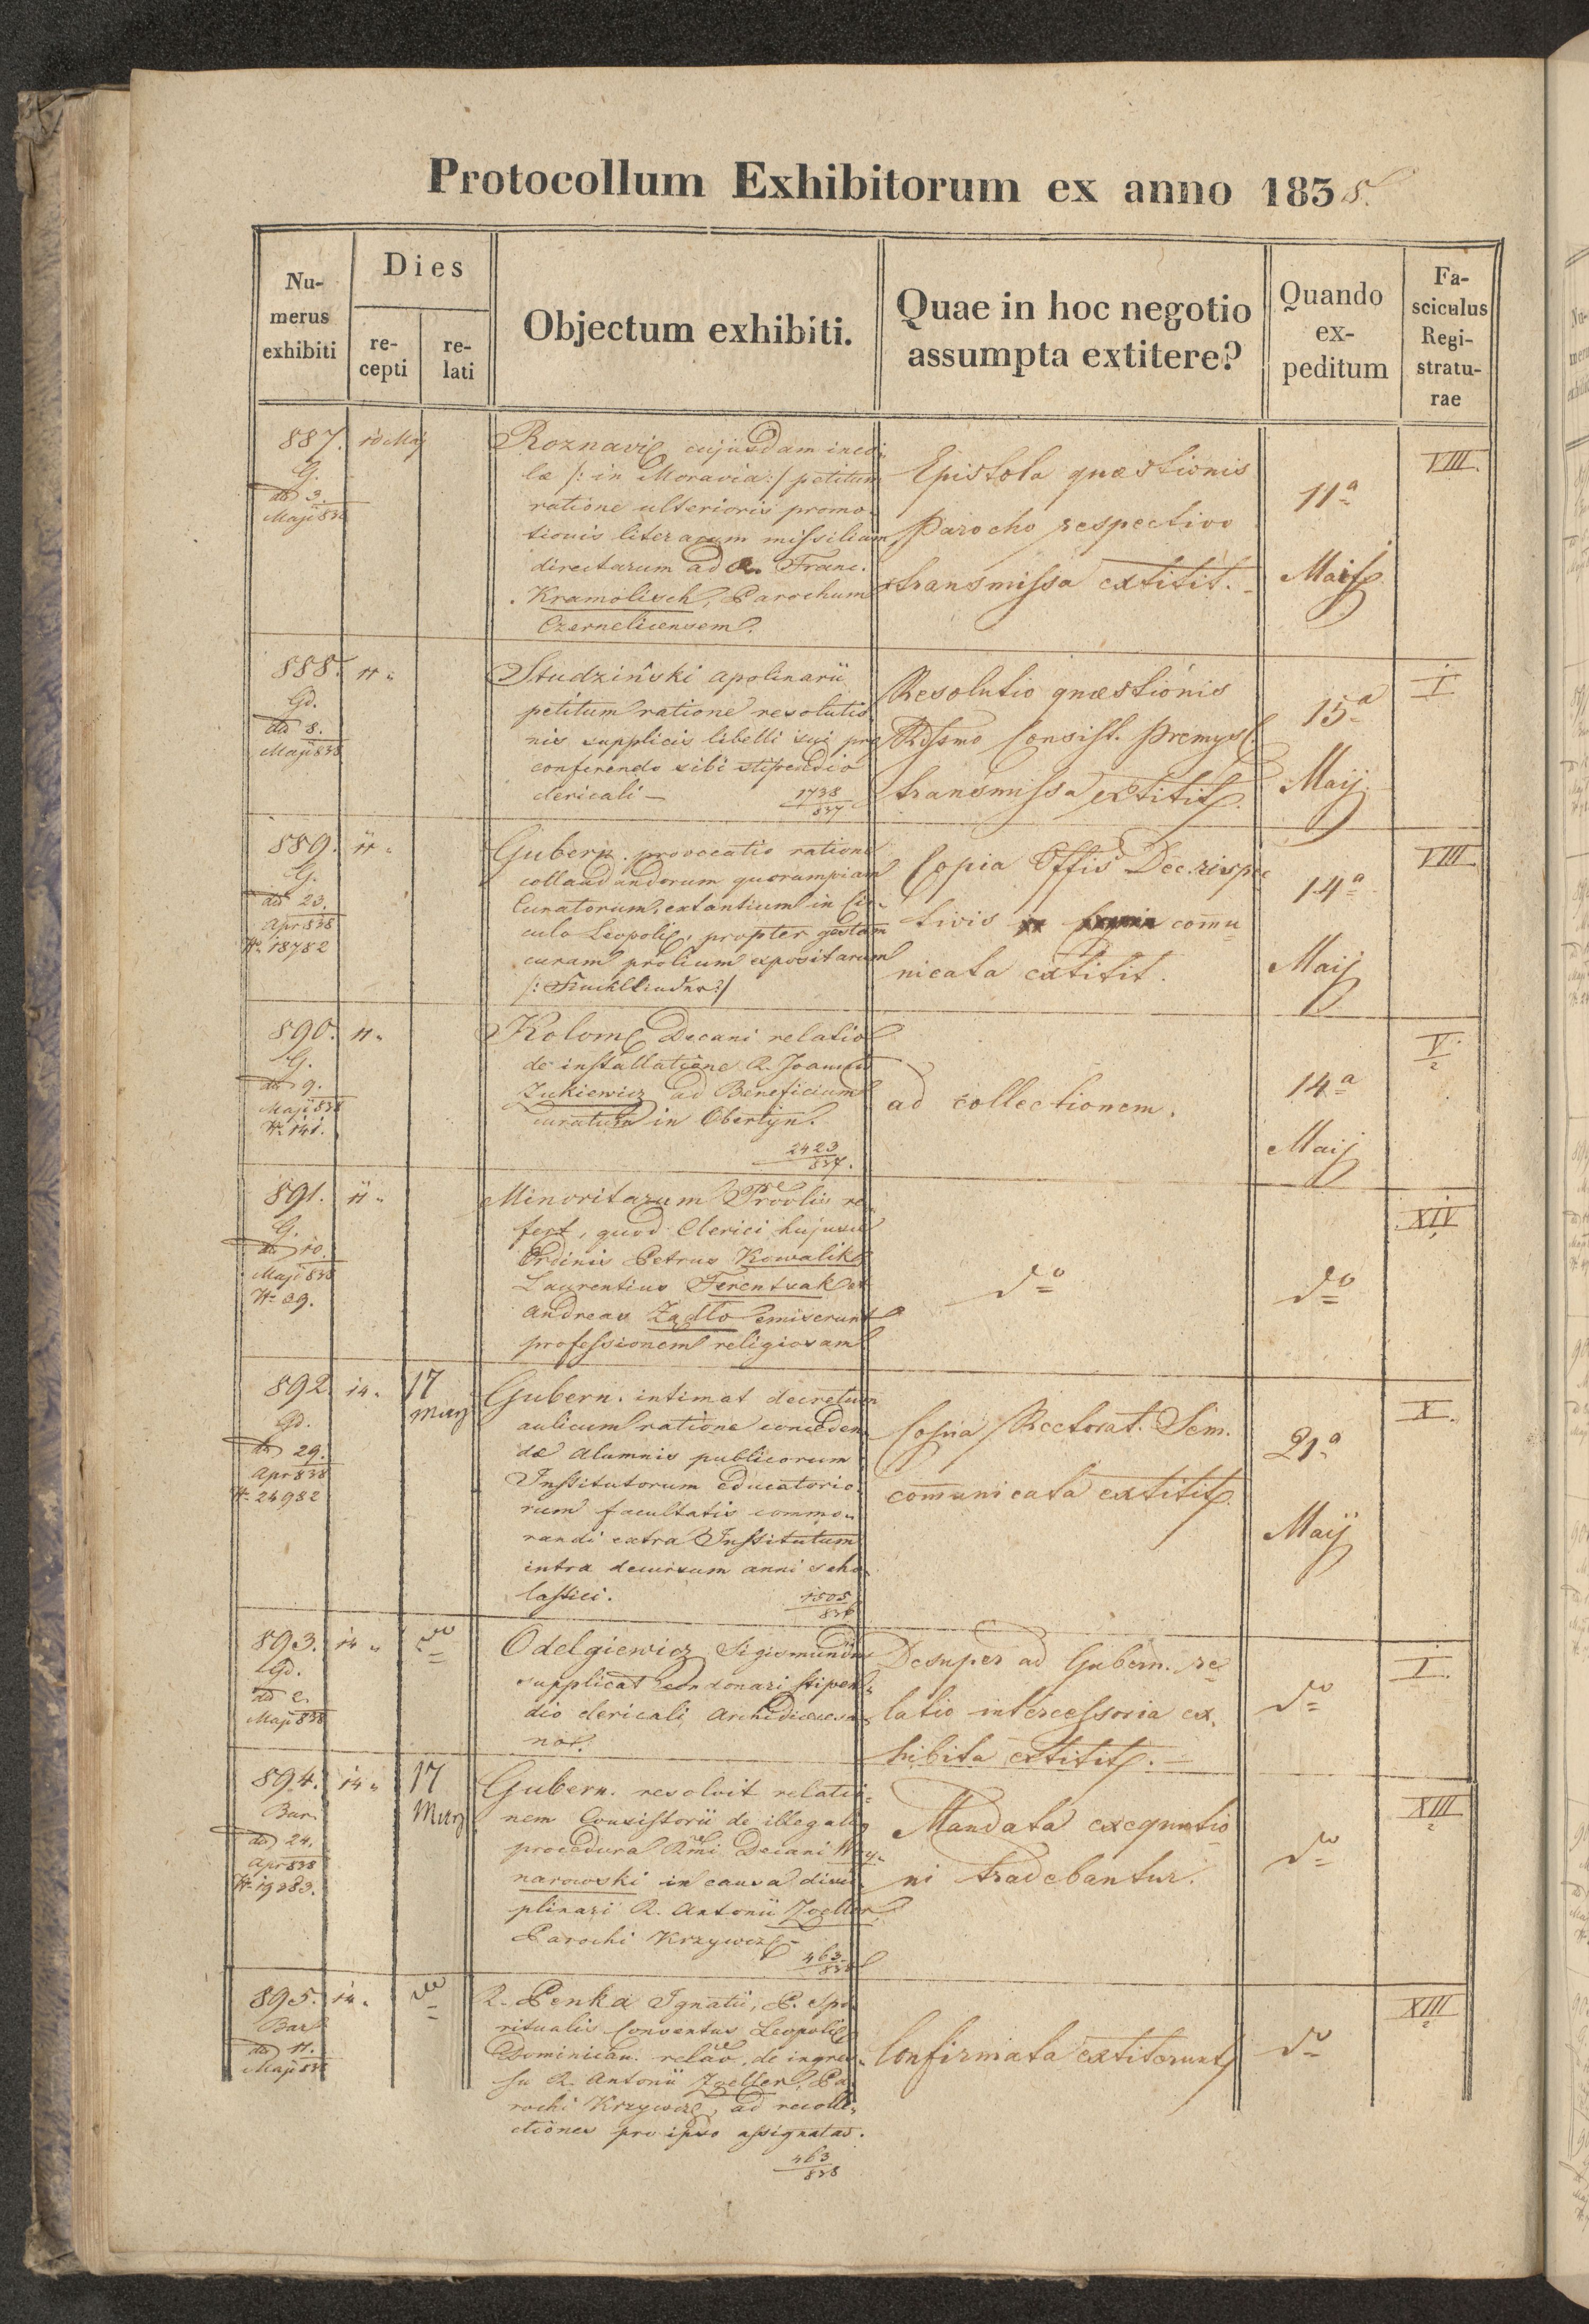 Protocollum Exhibitorum ex anno 1838.
Nu-
merus
exhibiti
Dies
re-
cepti
re-
lati
Objectum exhibiti.
Quae in hoc negotio
assumpta extitere?
Quando
ex-
peditum
Fa-
sciculus
Regi-
stratu-
rae
887.
G.
dd 3.
Maji 838
10 Maj
Roznavie cujusdam inco-
læ /: in Moravia :/ petitum
ratione ulterioris promo-
tionis literarum missilium
directarum ad R. Franc.
Kramolisch, Parochum
Czernelicensem.
Epistola quæstionis
Parocho respectivo
transmissa extitit.
11a
Maij
VIII.
888.
Gd.
dd 8.
Maji 838
11 "
Studziński Apolinarii
petitum ratione resolutio-
nis supplicis libelli sui pro
conferendo sibi stipendio
clericali —
1738
837
Resolutio quæstionis
Rdssmo Consist. Premysl.
transmissa extitit.
15a
Maij
I
889.
G.
dd 23.
Apr 838
N. 18782
11 "
Gubern. provocatio ratione
collaudandorum quorumpiam
Curatorum, extantium in Cir-
culo Leopoli, propter gestam
curam prolium expositarum
/: Findelkinder :/
Copia Offis Dec. respec
tivis comu
nicata extitit.
14a
Maij
VIII
890.
G.
dd 9.
Maji 838
N. 141.
11 "
Kolom Decani relatio
de installatione R. Joannis
Zukiewicz ad Beneficium
curatum in Obertyn.
2423
837.
ad collectionem.
14a
Maij
V.
891.
G.
dd 10.
Maji 838
N. 39.
11 "
Minoritarum Provlis re-
fert, quod Clerici hujus
Ordinis Petrus Kowalik
Laurentius Ferentsak et
Andreas Zadło emiserunt
professionem religiosam
do
do
XIV
892.
Gd.
dd 29.
Apr 838
N. 24982
14 "
17
May
Gubern. intimat decretum
aulicum ratione conceden-
dæ Alumnis publicorum
Institutorum educatorio-
rum facultatis commo-
randi extra Institutum
intra decursum anni scho-
lastici.
1505
836
Copia Rectorat. Sem.
comunicata extitit.
21a
Maij
X.
893.
Gd.
dd 2.
Maji 838
14 "
do
Odelgiewicz Sigismundus
supplicat condonari stipen-
dio clericali Archidiœcesa-
nos.
Desuper ad Gubern. re
latio intercessoria ex-
hibita extitit. —
do
I.
894.
Bar.
dd 24.
Apr 838
N. 19283.
14 "
17
May
Gubern. resolvit relatio-
nem Consistorii de illegali
procedura Rmi Decani Wey-
narowski in causa disci-
plinari R. Antonii Zoeller
Parochi Krzywcze
463
838
Mandata exequutio
ni tradebantur.
do
XIII
895.
Bar
dd 11.
Maji 838
14 "
do
R. Penka Ignatii, P. Spi-
ritualis Conventus Leopoli
Dominican. relao, de ingres-
su R. Antonii Zoeller, Pa-
rochi Krzywcze, ad recolle-
ctiones pro ipso assignatas.
463
838
Confirmata extiterunt
do
XIII